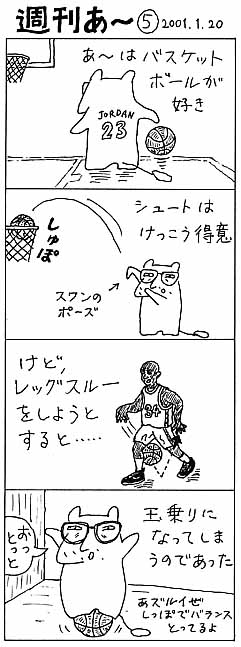 週刊あ〜 ⑤ 2001.1.20
あ〜は バスケット
ボールが
好き
JORDAN
23
シュートは
けっこう得意
しゅぽ
スワンの
ポーズ
けど、
レッグスルー
をしようと
すると……
34
玉乗りに
なってしま
うのであった
おっ
とっと
あズルイぜ
しっぽでバランス
とってるよ